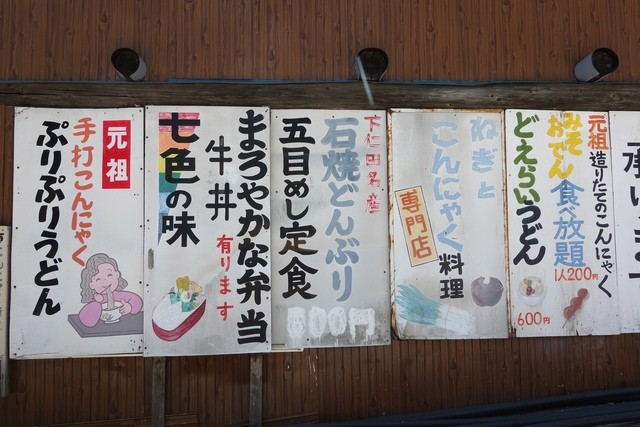 元祖造りたてのこんにゃく
みそ
おでん
食べ放題
1人200円
どえらいうどん
600円
ねぎと
こんにゃく料理
専門店
下仁田名産
石焼どんぶり
五目めし定食
まろやかな弁当
牛丼
有ります
七色の味
元祖
手打こんにゃく
ぷりぷりうどん